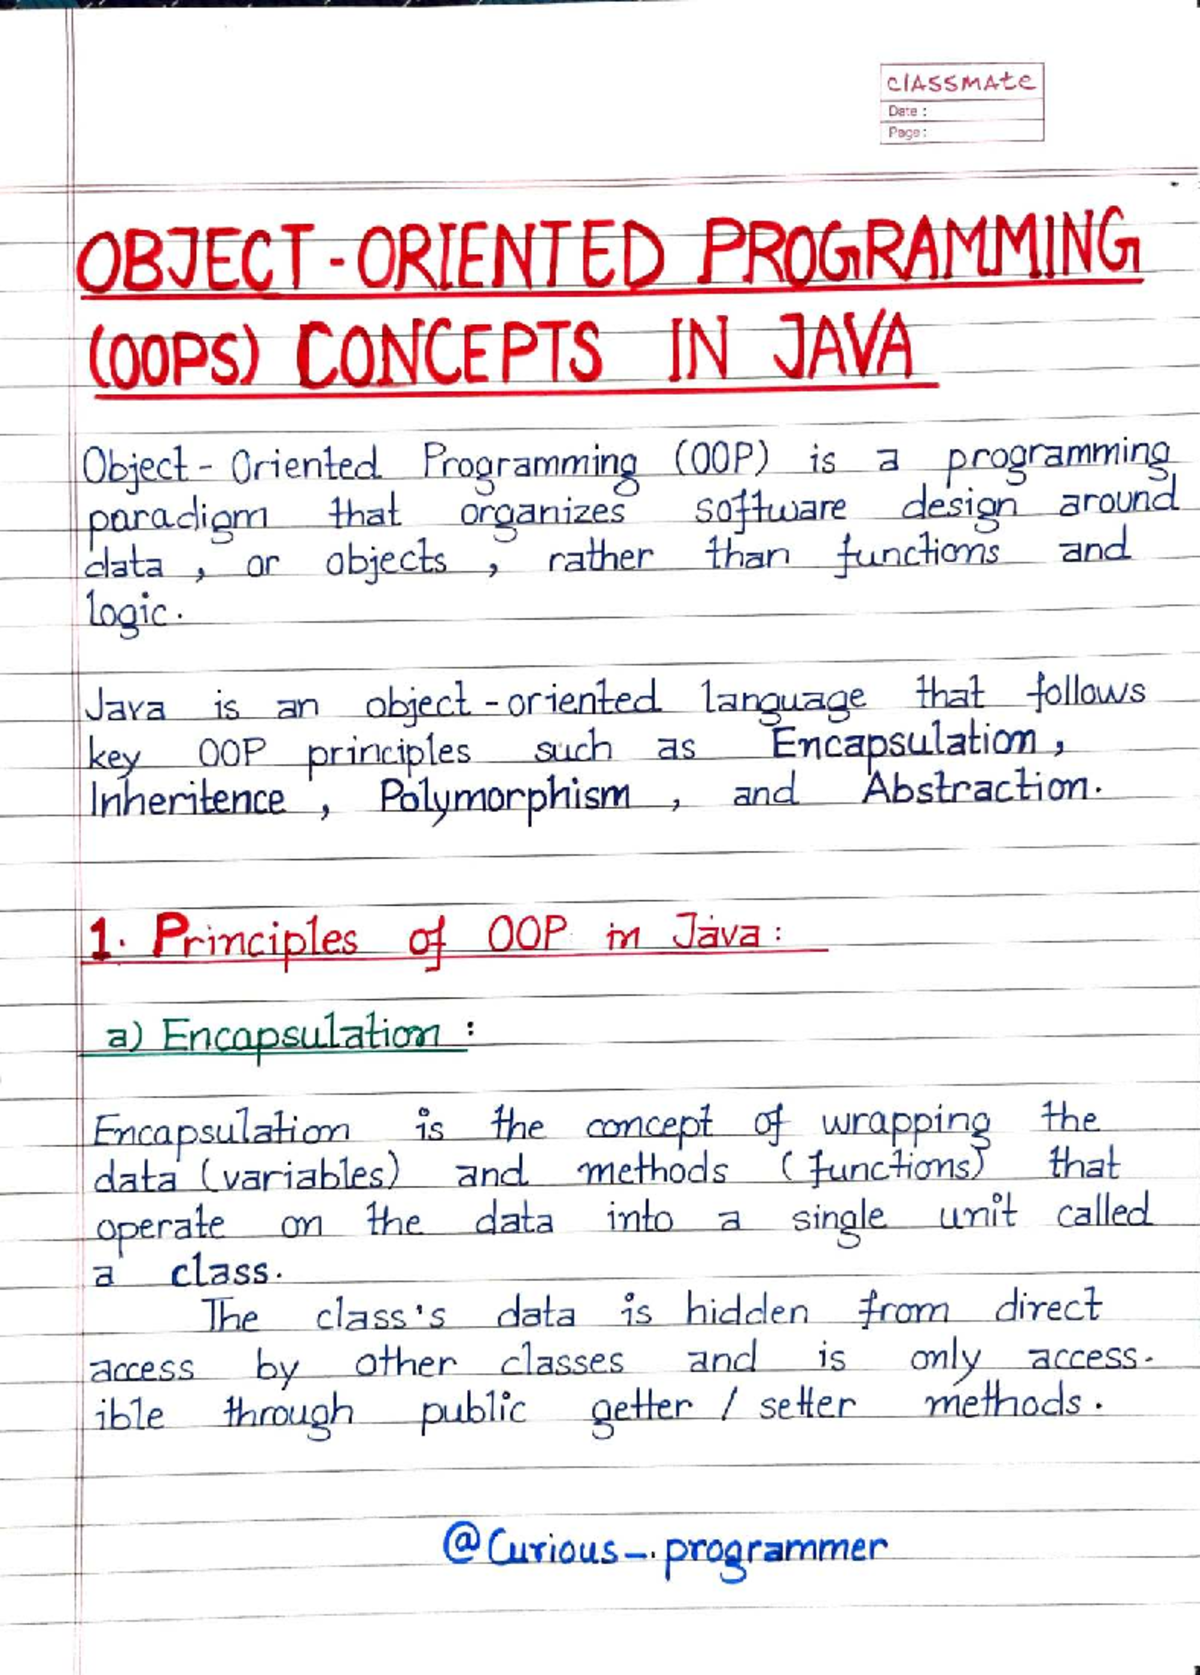 classmate
Date :
Page :
OBJECT-ORIENTED PROGRAMMING
(OOPS) CONCEPTS IN JAVA
Object-Oriented Programming (OOP) is a programming
paradigm that organizes software design around
data , or objects , rather than functions and
logic.
Java is an object-oriented language that follows
key OOP principles such as Encapsulation ,
Inheritence , Polymorphism , and Abstraction.
1. Principles of OOP in Java :
a) Encapsulation :
Encapsulation is the concept of wrapping the
data (variables) and methods (functions) that
operate on the data into a single unit called
a class.
The class's data is hidden from direct
access by other classes and is only access-
ible through public getter / setter methods.
@Curious_.programmer